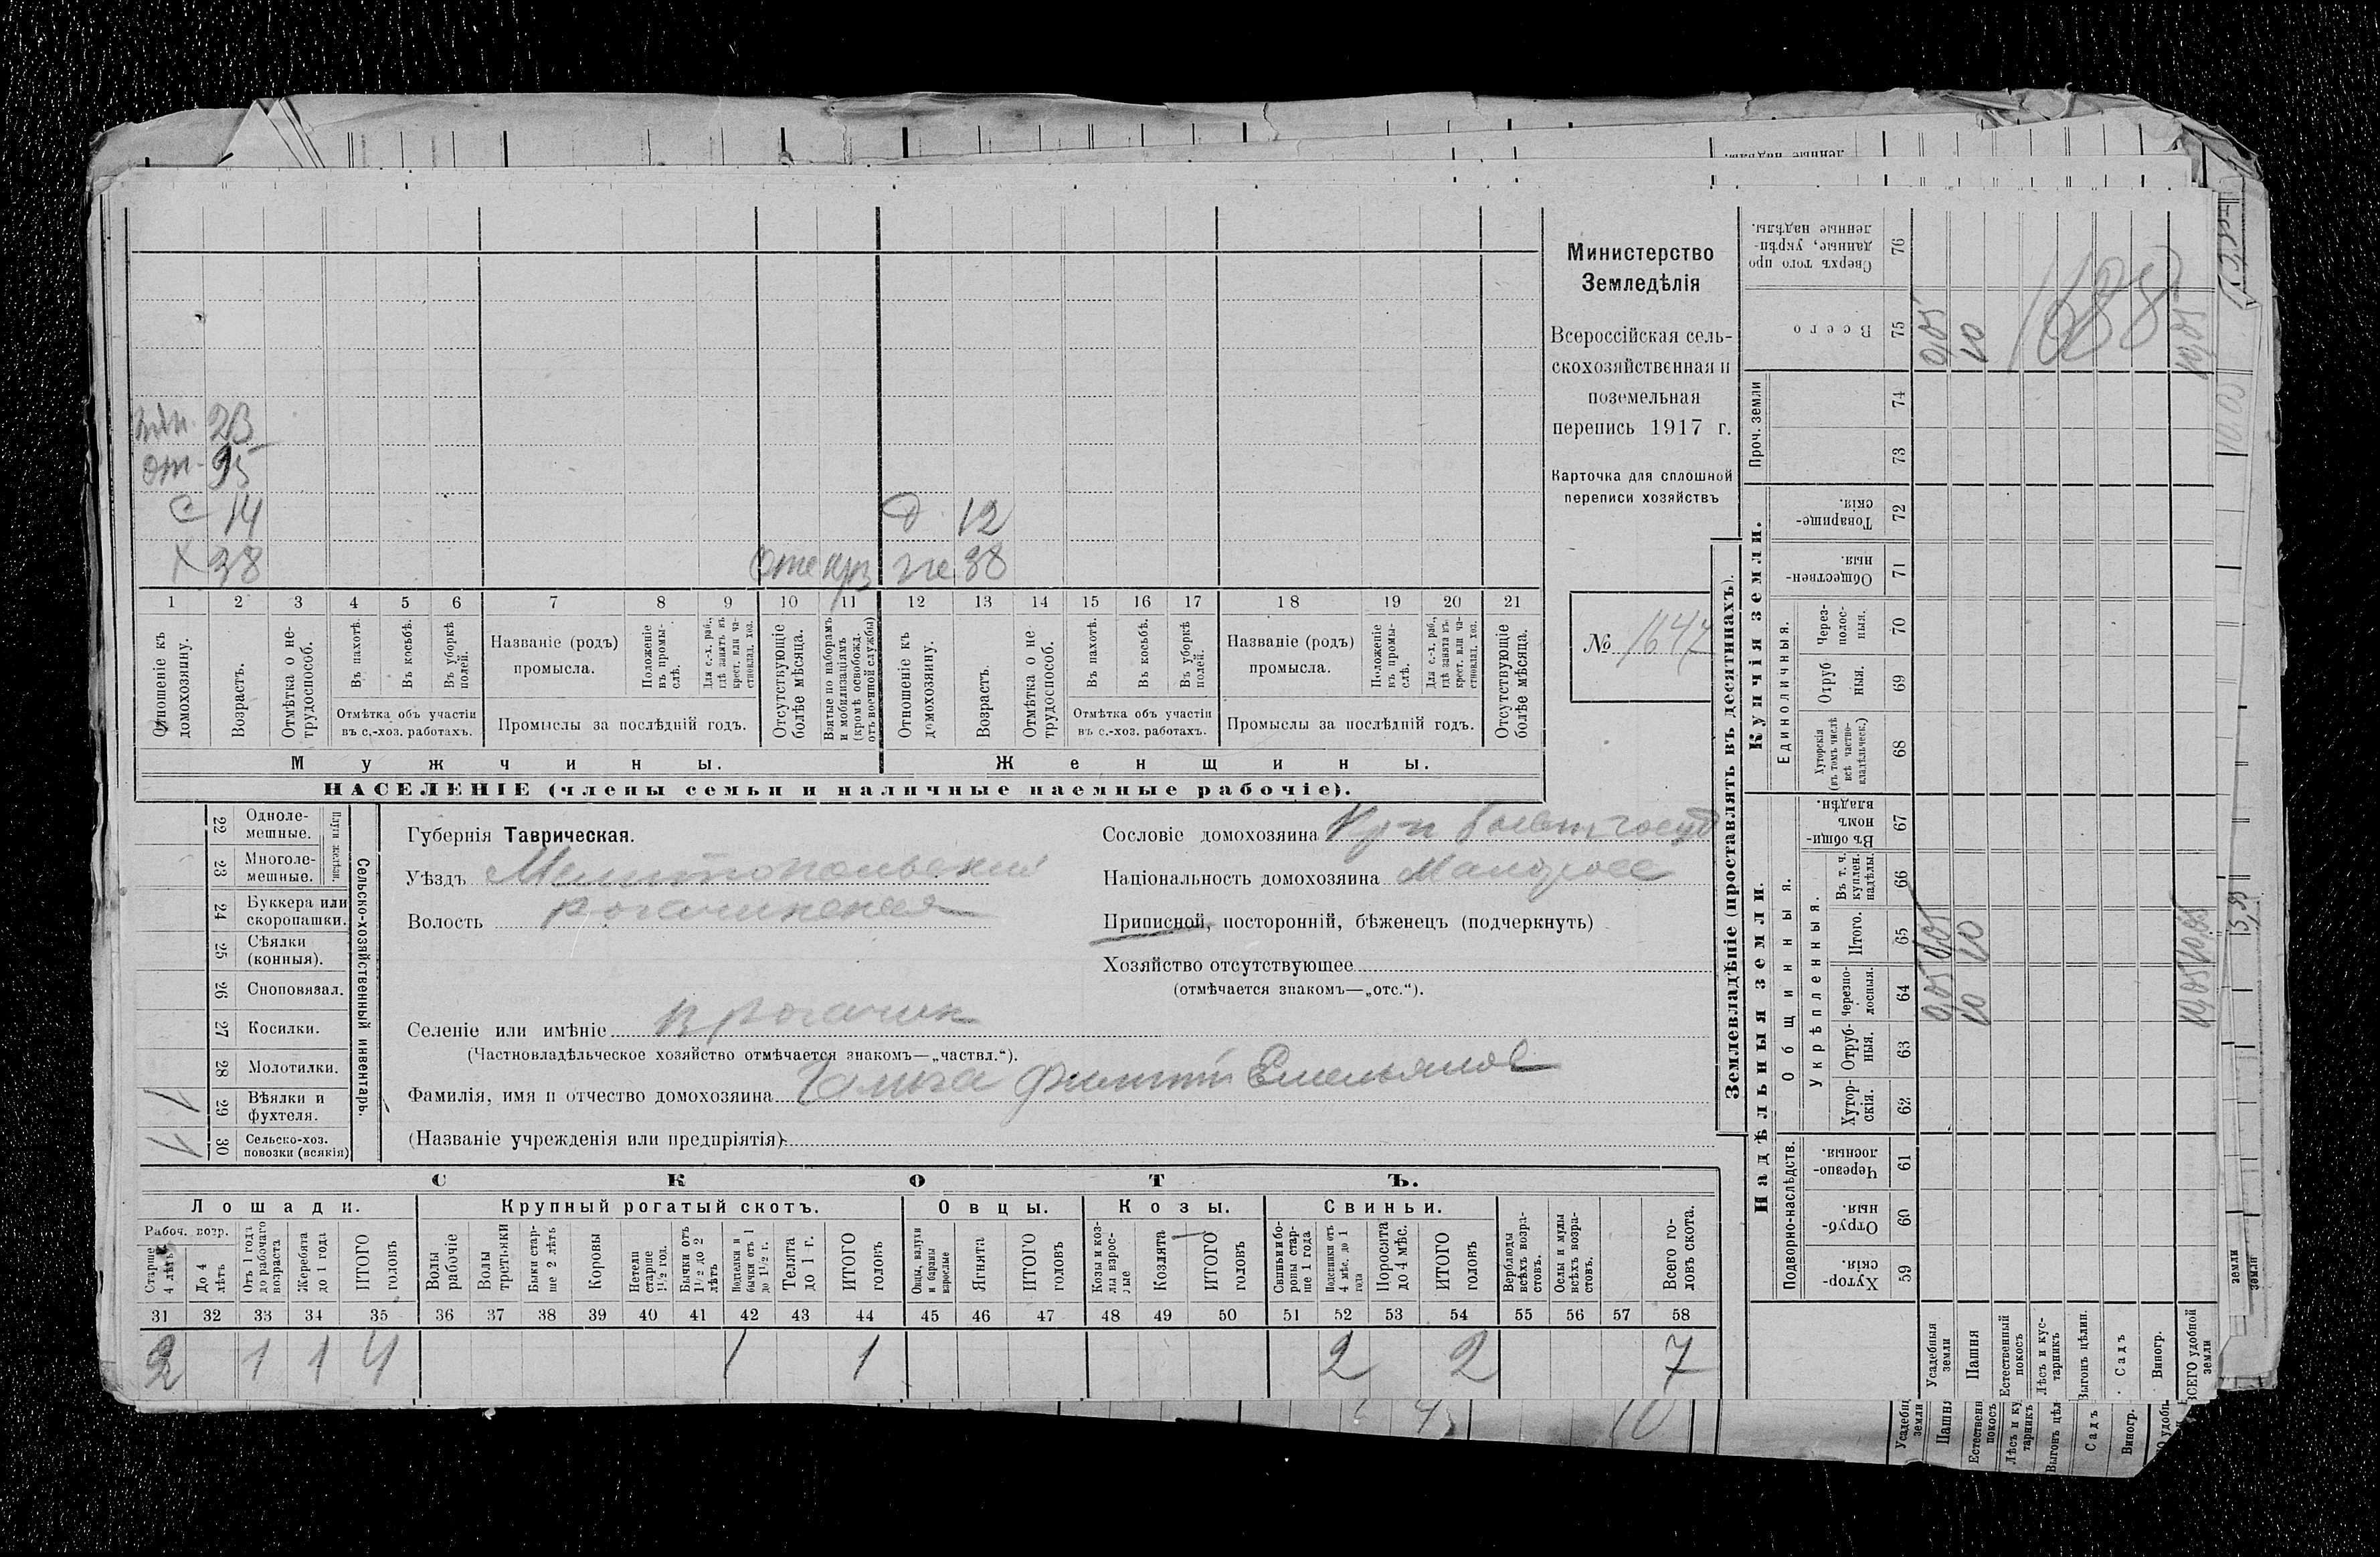 Министерство
Земледѣлія
Всероссійская сель-
скохозяйственная и
поземельная
перепись 1917 г.
Карточка для сплошной
переписи хозяйствъ
№ 1647
23
от- 95
с 14
Д. 12
Х 38
же 38
1 2 3 4 5 6 7 8 9 10 11 12 13 14 15 16 17 18 19 20 21
Отношеніе къ домохозяину.
Возрастъ.
Отмѣтка о не-трудоспособ.
Въ пахотѣ.
Въ косьбѣ.
Въ уборкѣ полей.
Отмѣтка объ участіи въ с.-хоз. работахъ.
Названіе (родъ) промысла.
Положеніе въ промы-слѣ.
Для с.-х. раб., гдѣ занятъ въ крест. или ча-стновлад. хоз.
Промыслы за послѣдній годъ.
Отсутствующіе болѣе мѣсяца.
Взятые по наборамъ и мобилизаціямъ (кромѣ освобожд. отъ военной службы)
Отношеніе къ домохозяину.
Возрастъ.
Отмѣтка о не-трудоспособ.
Въ пахотѣ.
Въ косьбѣ.
Въ уборкѣ полей.
Отмѣтка объ участіи въ с.-хоз. работахъ.
Названіе (родъ) промысла.
Положеніе въ промы-слѣ.
Для с.-х. раб., гдѣ занята въ крест. или ча-стновлад. хоз.
Промыслы за послѣдній годъ.
Отсутствующіе болѣе мѣсяца.
Мужчины.
Женщины.
НАСЕЛЕНІЕ (члены семьи и наличные наемные рабочіе).
Сельско-хозяйственный инвентарь.
Плуги желѣзн.
22 Одноле-мешные.
23 Многоле-мешные.
24 Буккера или скоропашки.
25 Сѣялки (конныя).
26 Сноповязал.
27 Косилки.
28 Молотилки.
29 Вѣялки и фухтеля. 1
30 Сельско-хоз. повозки (всякія) 1
Губернія Таврическая.
Уѣздъ Мелитопольскій
Волость Рогачинская
Селеніе или имѣніе В Рогачик
(Частновладѣльческое хозяйство отмѣчается знакомъ—„частвл.“).
Фамилія, имя и отчество домохозяина Филиппъ Емельянов
(Названіе учрежденія или предпріятія)
Сословіе домохозяина
Національность домохозяина Малоросс
Приписной, посторонній, бѣженецъ (подчеркнуть)
Хозяйство отсутствующее
(отмѣчается знакомъ—„отс.“).
СКОТЪ.
Лошади.
Крупный рогатый скотъ.
Овцы.
Козы.
Свиньи.
Рабоч. возр.
Старше 4 лѣтъ
До 4 лѣтъ
Отъ 1 года до рабочаго возраста
Жеребята до 1 года
ИТОГО головъ
Волы рабочіе
Волы третьяки
Быки стар-ше 2 лѣтъ
Коровы
Нетели старше 1½ год.
Бычки отъ 1½ до 2 лѣтъ
Подтелки и бычки отъ 1 до 1½ г.
Телята до 1 г.
ИТОГО головъ
Овцы, валухи и бараны взрослые
Ягнята
ИТОГО головъ
Козы и коз-лы взрос-лые
Козлята
ИТОГО головъ
Свиньи и бо-ровы стар-ше 1 года
Подсвинки отъ 4 мѣс. до 1 года
Поросята до 4 мѣс.
ИТОГО головъ
Верблюды всѣхъ возра-стовъ.
Ослы и мулы всѣхъ возра-стовъ.
Всего го-ловъ скота.
31 32 33 34 35 36 37 38 39 40 41 42 43 44 45 46 47 48 49 50 51 52 53 54 55 56 57 58
2 1 1 4 1 1 2 2 7
Землевладѣніе (проставлять въ десятинахъ).
Надѣльныя земли.
Купчія земли.
Проч. земли
Подворно-наслѣдств.
Общинныя.
Укрѣпленныя.
Единоличныя.
Хутор-скія. 59
Отруб-ныя. 60
Черезпо-лосныя. 61
Хутор-скія. 62
Отруб-ныя. 63
Черезпо-лосныя. 64
Итого. 65
Въ т. ч. куплен. надѣлы. 66
Въ общи-номъ владѣн. 67
Хуторскія (въ томъ числѣ всѣ частно-владѣльческ.) 68
Отруб ныя. 69
Через-полос-ныя. 70
Обществен-ныя. 71
Товарище-скія. 72
73
74
Всего 75
Сверхъ того про данные, укрѣп-ленные надѣлы. 76
Усадебныя земли 0,05 0,05 0,05
Пашня 10 10 10
Естественный покосъ
Лѣсъ и кус-тарникъ
Выгонъ цѣлин.
Садъ
Виногр.
ВСЕГО удобной земли 10,05 10,05 10,05
1688